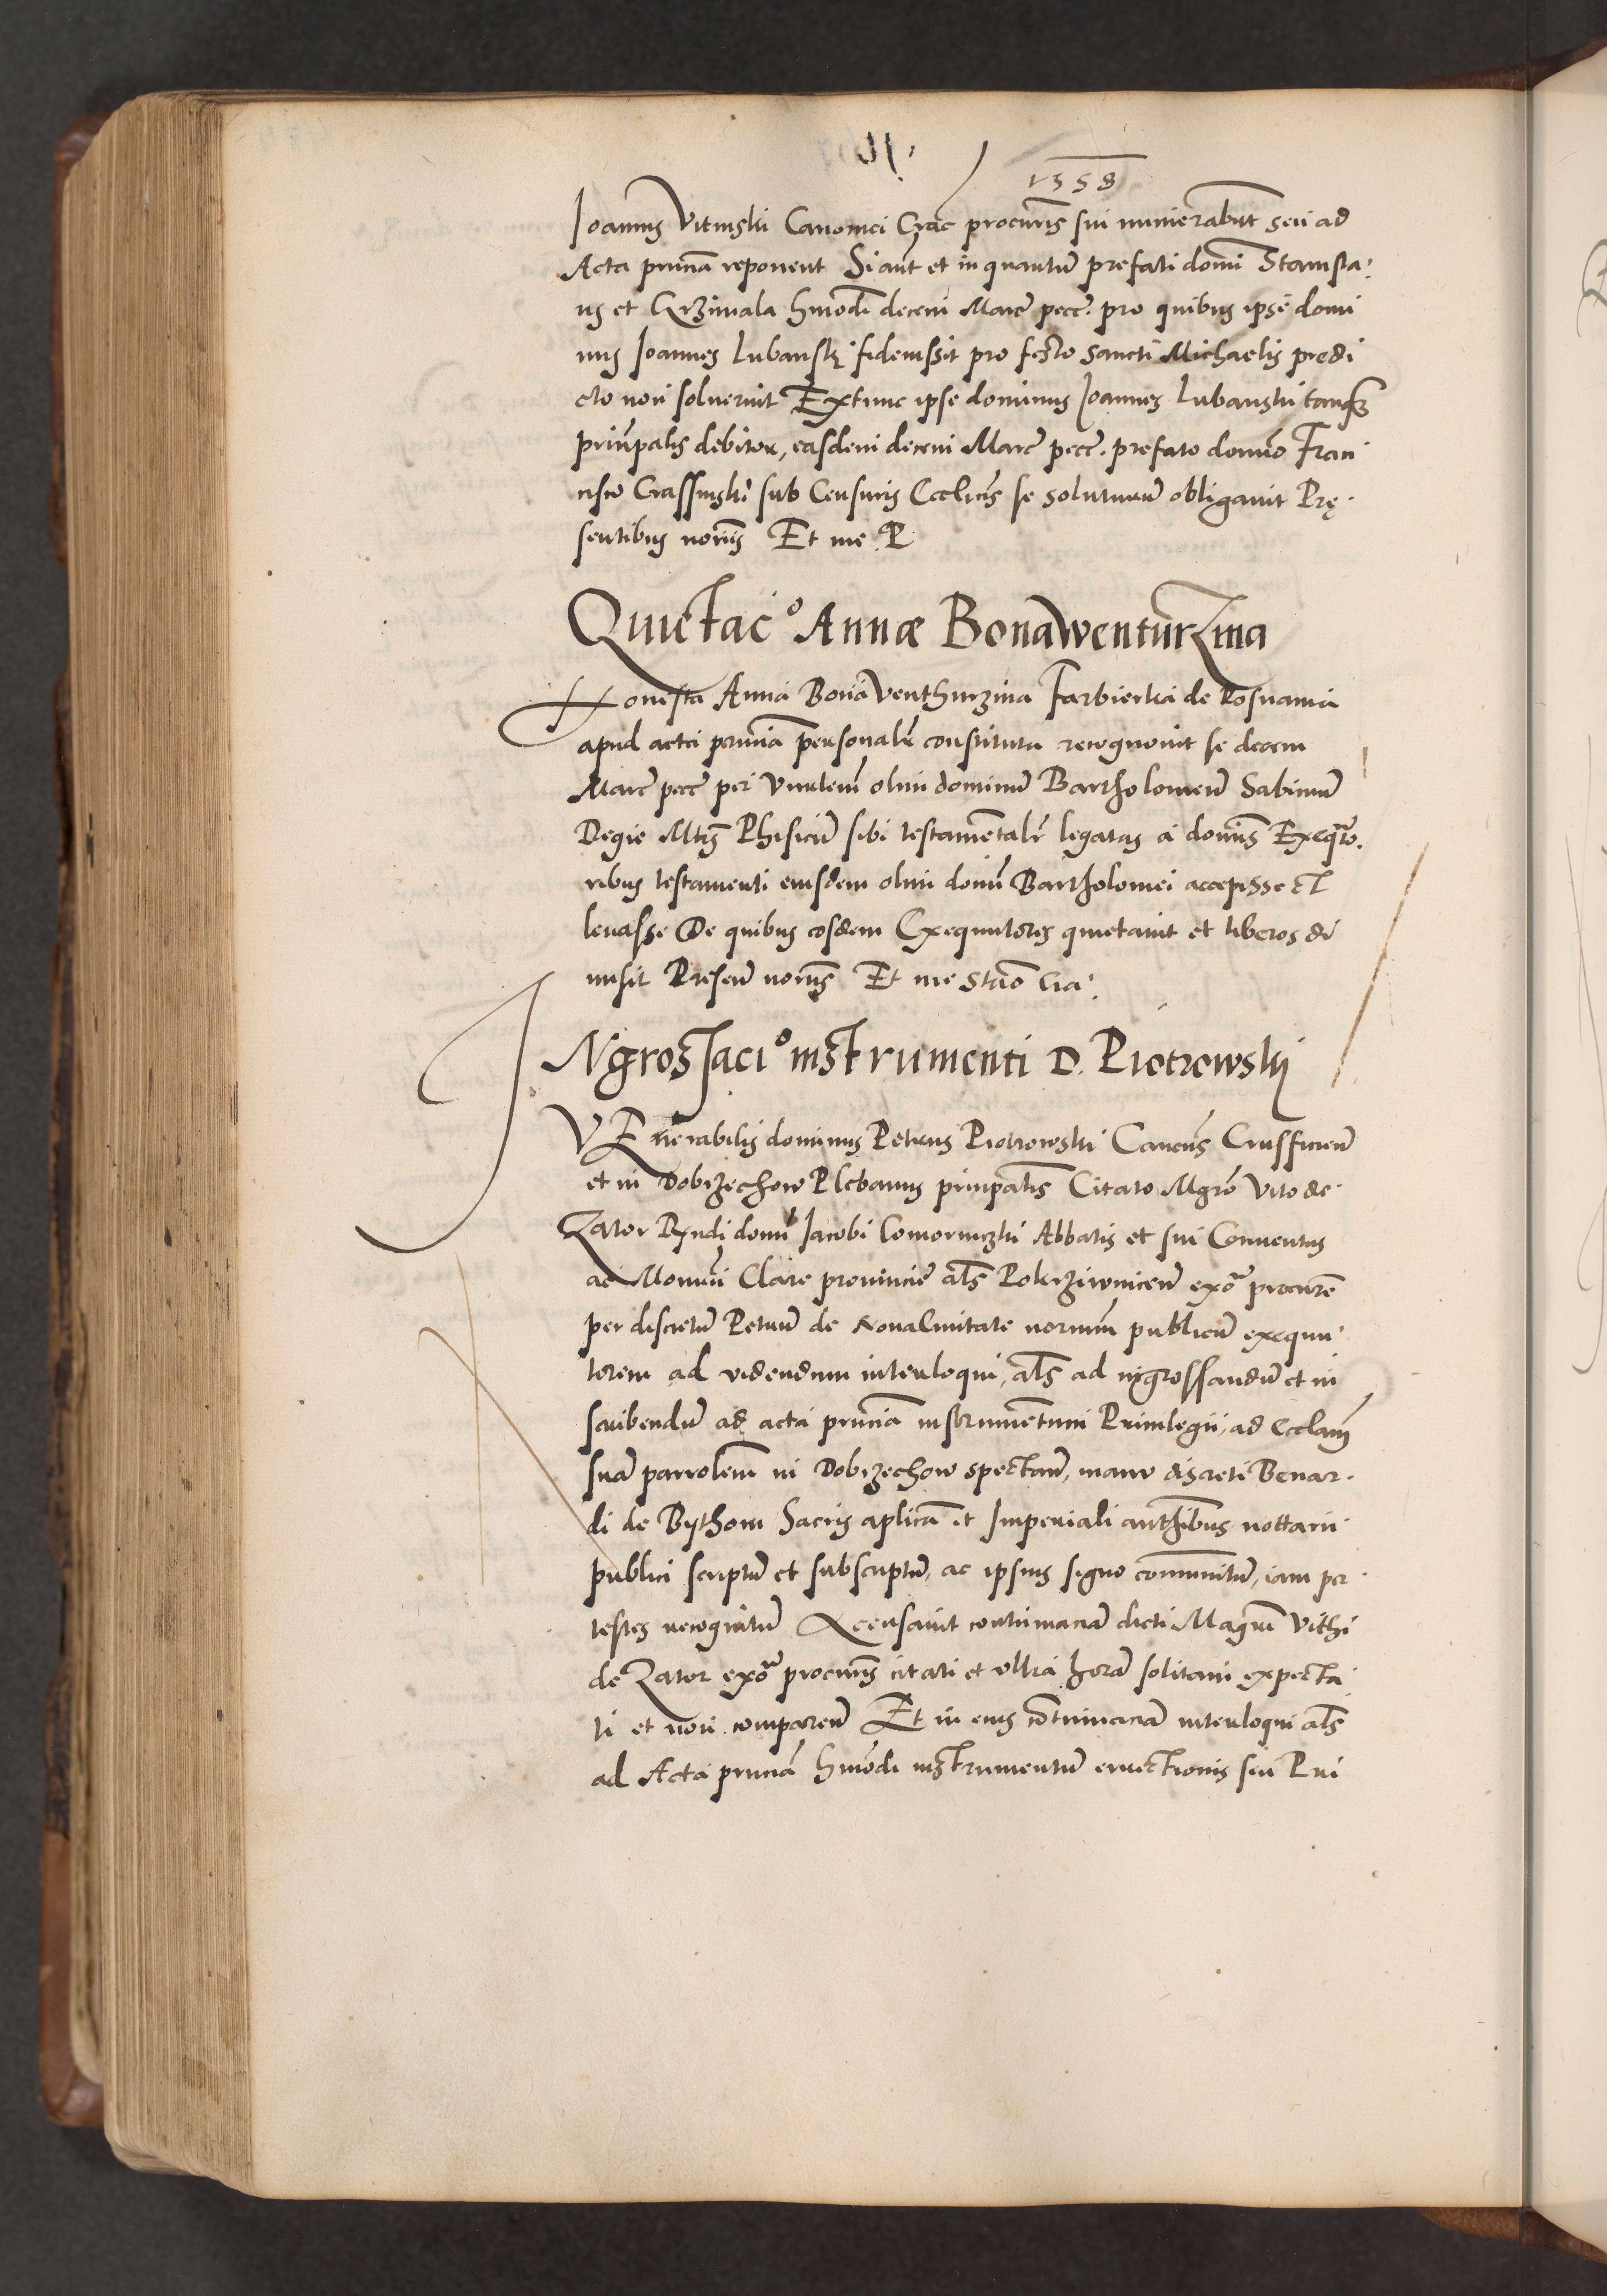 1558
Ioannis Vitinski Canonici Crac procuris sui numerabunt seu ad
Acta prnâ reponent Si aut et in quantu prefati domi Stanisla:
us et Krzimala hmodi decem Marc pecc. pro quibus ipse domi
nus Ioannes Lubansky fideiussit pro festo Sancti Michaelis predi
cto non soluerint Extunc ipse dominus Ioannes Lubanski tanq3
prinpalis debitor, easdem decem Marc pecc. prefato domno Fran
cisco Crassinski sub Censuris Ecclicis se soluturu obligauit Prę.
sentibus noriis Et me P
Quietacio Annæ BonawenturZina
Honesta Anna BonaVenthurzina Farbierka de Posnania
apud acta prnia personalr constituta recognouit se decem
Marc pecc per olim dominu Bartholomeu Sabinum
Regie Mtis Phisicu sibi testamentalr legatas a domis Exequto.
ribus testamenti eiusdem olim domi Bartholomei accepisse et
leuasse De quibus eosdem Exequutores quietauit et liberos di
misit Presen noriis Et me Stao Cra:
INgrossacio instrumenti D. Piotrowski
VEnerabilis dominus Petrus Piotrowski Crusficien
et in Dobrzechow Plebanus prinpalis Citato Mgro Vito de.
Zator Rndi domi Iacobi Comorniczki Abbatis et sui Conuentus
ac Monrii Clare prouincie als Pokrziwnicen exo procure
per discretu Petrum de Nouaciuitate norium publicu exequu
torem ad videndum interloqui, als ad ingrossandu et in
scribendu ad acta prnia instrumentum Priuilegii, ad Ecclam
sua parrolem in Dobrzechow spectan, manu discreti Benar.
di de Bythom Sacris aplica et Imperiali authibus nottarii
publici scriptu et subscriptu, ac ipsius signo communitu, iam per
testes recognitu Accusauit contumacia dicti Magri Vithi
de Zator exo procuris citati et vltra hora solitam expecta
ti et non comparen Et in eius contumacia interloqui als
ad Acta prnia hmodi instrumentu erectionis seu Pri